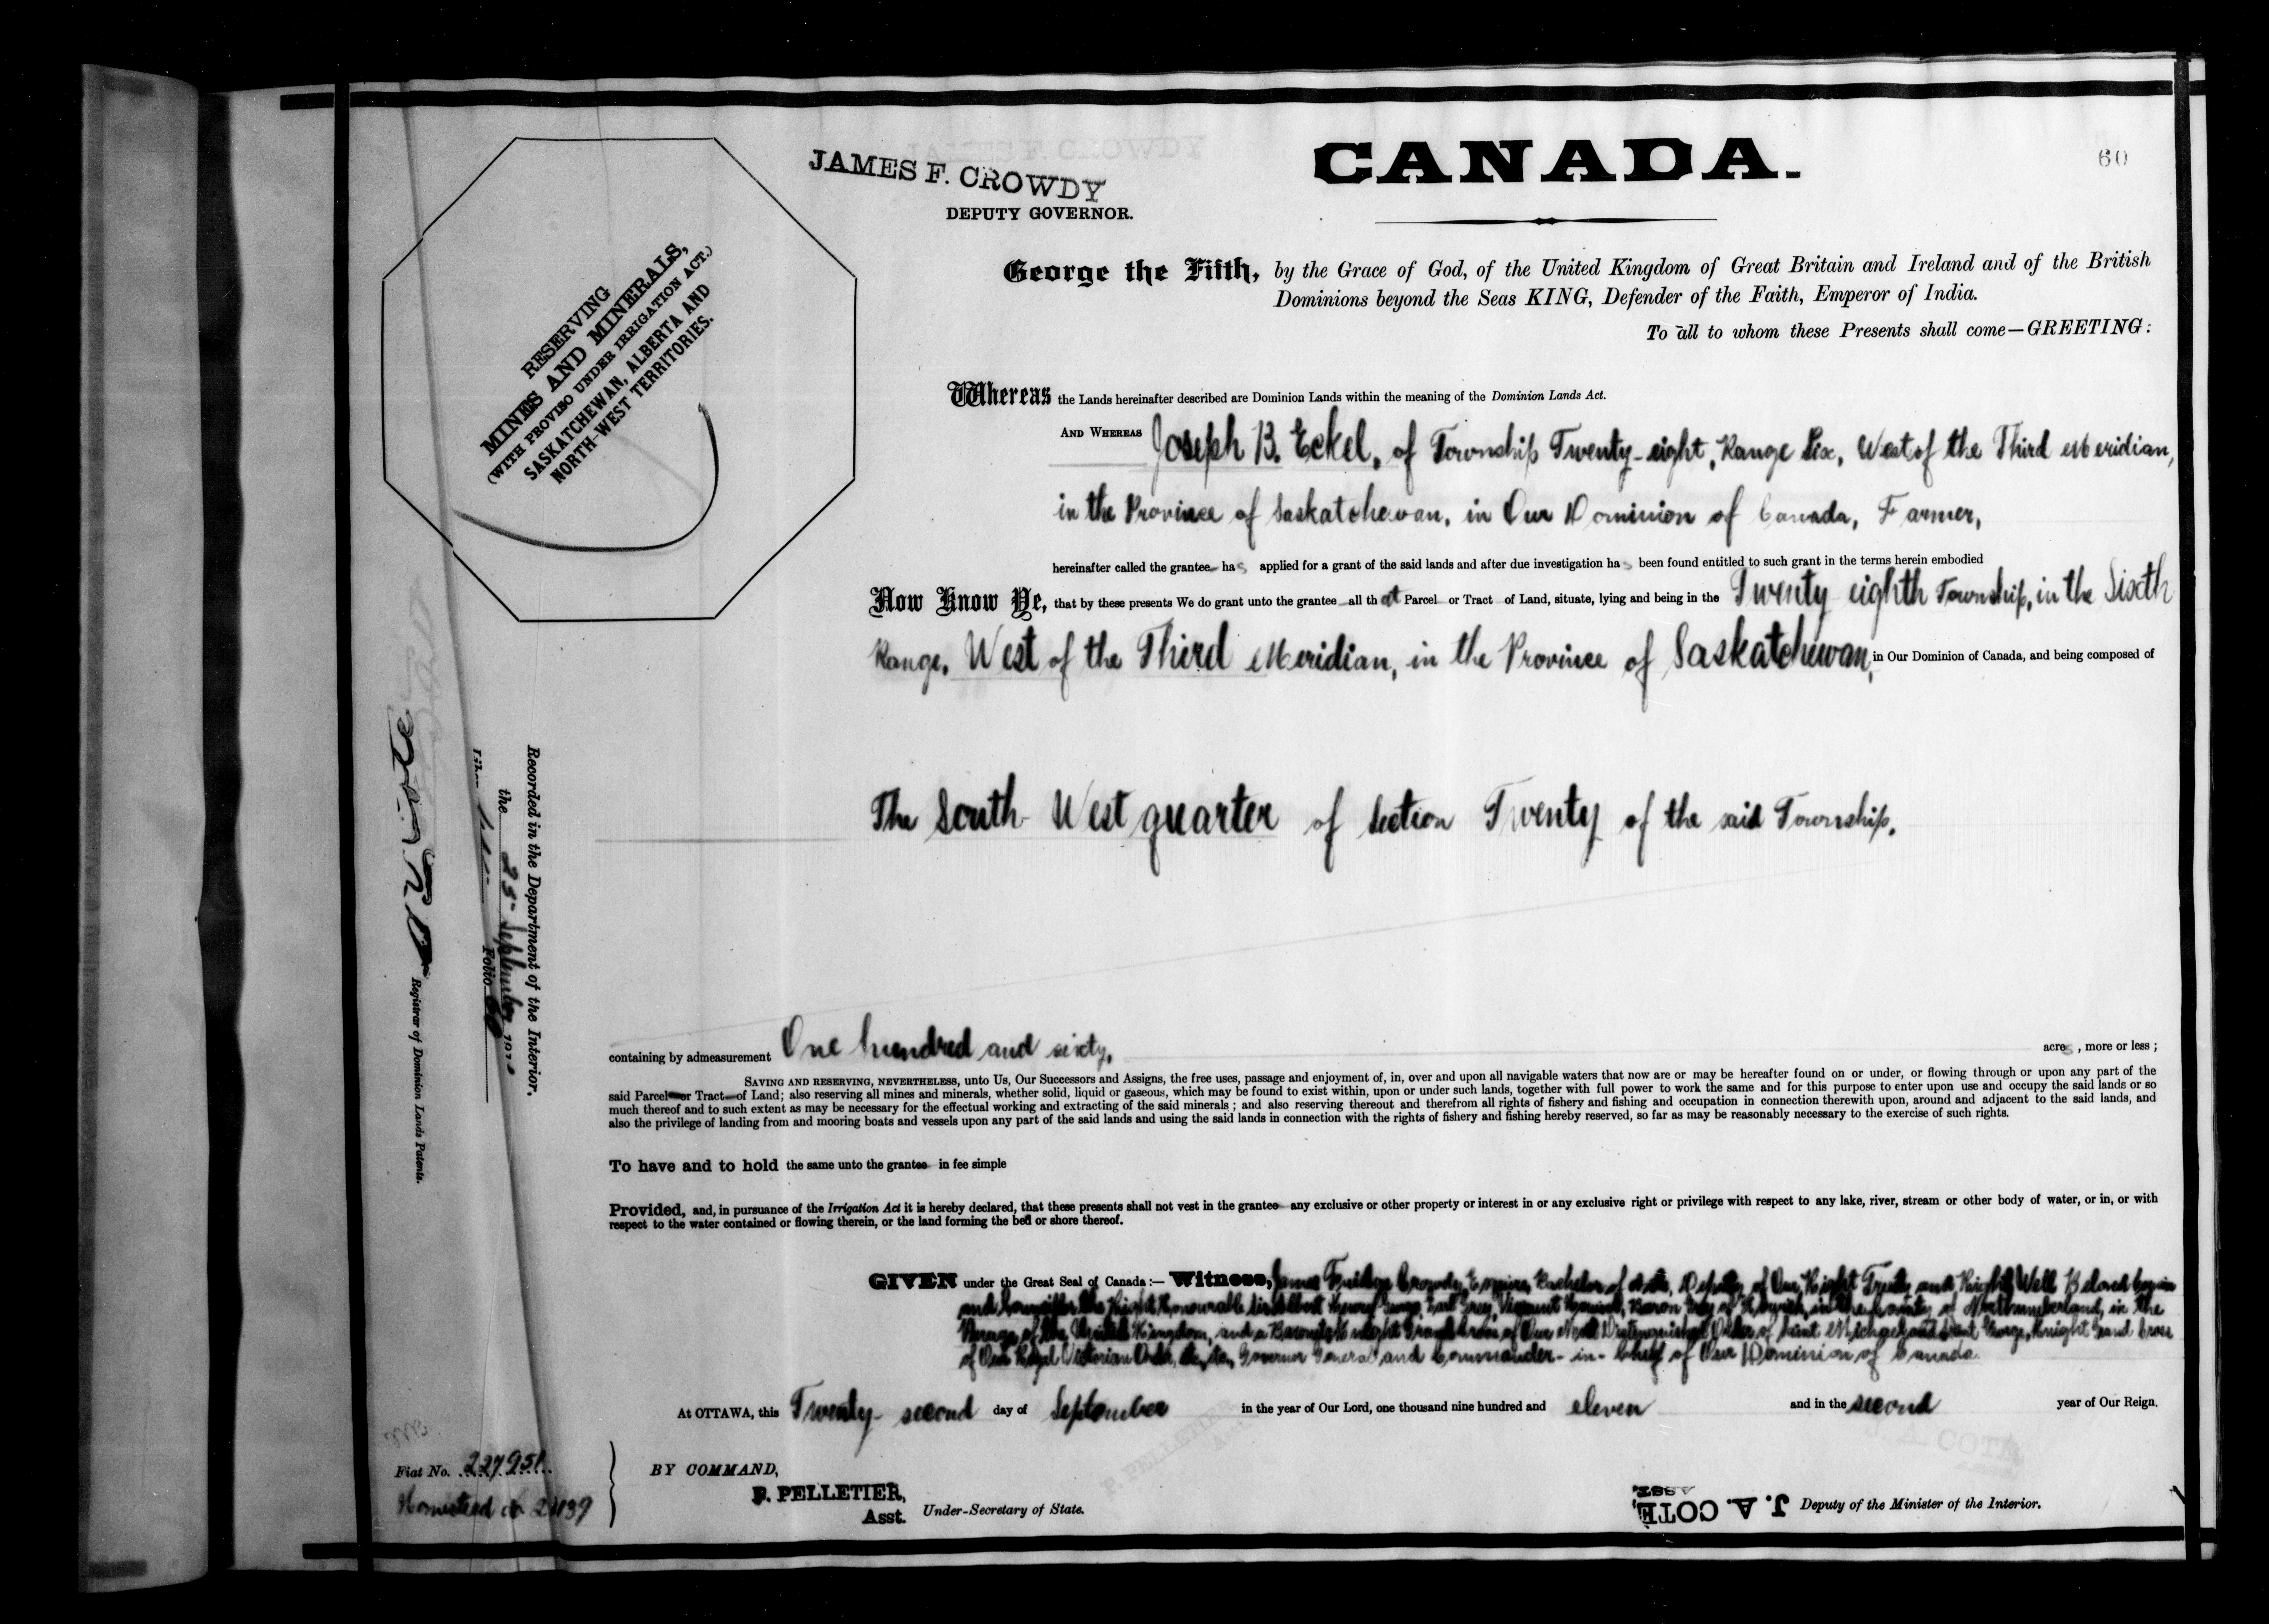 60
JAMES F. CROWDY
DEPUTY GOVERNOR.
CANADA.
RESERVING
MINES AND MINERALS,
(WITH PROVISO UNDER IRRIGATION ACT.)
SASKATCHEWAN, ALBERTA AND
NORTH-WEST TERRITORIES.
George the Fifth, by the Grace of God, of the United Kingdom of Great Britain and Ireland and of the British
Dominions beyond the Seas KING, Defender of the Faith, Emperor of India.
To all to whom these Presents shall come—GREETING:
Whereas the Lands hereinafter described are Dominion Lands within the meaning of the Dominion Lands Act.
AND WHEREAS Joseph B. Eckel, of Township Twenty-eight, Range Six, West of the Third Meridian,
in the Province of Saskatchewan, in Our Dominion of Canada, Farmer,
hereinafter called the grantee has applied for a grant of the said lands and after due investigation has been found entitled to such grant in the terms herein embodied
Now Know Ye, that by these presents We do grant unto the grantee all that Parcel or Tract of Land, situate, lying and being in the Twenty eighth Township, in the Sixth
Range, West of the Third Meridian, in the Province of Saskatchewan, in Our Dominion of Canada, and being composed of
The South-West quarter of Section Twenty of the said Township.
containing by admeasurement One hundred and sixty, acres, more or less;
SAVING AND RESERVING, NEVERTHELESS, unto Us, Our Successors and Assigns, the free uses, passage and enjoyment of, in, over and upon all navigable waters that now are or may be hereafter found on or under, or flowing through or upon any part of the
said Parcel or Tract of Land; also reserving all mines and minerals, whether solid, liquid or gaseous, which may be found to exist within, upon or under such lands, together with full power to work the same and for this purpose to enter upon use and occupy the said lands or so
much thereof and to such extent as may be necessary for the effectual working and extracting of the said minerals; and also reserving thereout and therefrom all rights of fishery and fishing and occupation in connection therewith upon, around and adjacent to the said lands, and
also the privilege of landing from and mooring boats and vessels upon any part of the said lands and using the said lands in connection with the rights of fishery and fishing hereby reserved, so far as may be reasonably necessary to the exercise of such rights.
To have and to hold the same unto the grantee in fee simple
Provided, and, in pursuance of the Irrigation Act it is hereby declared, that these presents shall not vest in the grantee any exclusive or other property or interest in or any exclusive right or privilege with respect to any lake, river, stream or other body of water, or in, or with
respect to the water contained or flowing therein, or the land forming the bed or shore thereof.
GIVEN under the Great Seal of Canada:— Witness, James Crowdy, Esquire, Bachelor of Arts, Deputy of Our Right Trusty and Right Well Beloved Cousin
and Councillor the Right Honourable Sir Albert Henry George, Earl Grey, Viscount Howick, Baron Grey of Howick, in the County of Northumberland, in the
Peerage of the United Kingdom, and a Baronet; Knight Grand Cross of Our Most Distinguished Order of Saint Michael and Saint George, Knight Grand Cross
of Our Royal Victorian Order, etc., etc., Governor General and Commander-in-Chief of Our Dominion of Canada.
At OTTAWA, this Twenty-second day of September in the year of Our Lord, one thousand nine hundred and eleven and in the second year of Our Reign.
BY COMMAND,
P. PELLETIER,
Asst. Under-Secretary of State.
J. A. COTE,
ASST. Deputy of the Minister of the Interior.
Recorded in the Department of the Interior.
the 25 September 191
Folio
Registrar of Dominion Lands Patents.
Fiat No. 227951
Homestead